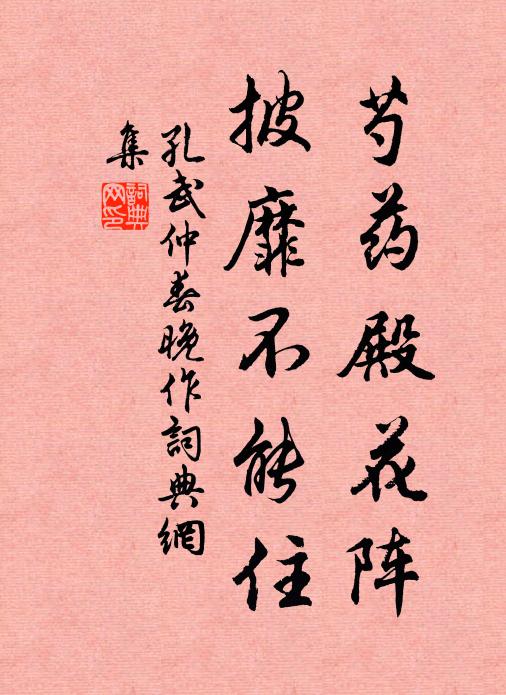 芍药殿花阵
披靡不能住
孔武仲春晚作詞典網
集
詞典网印